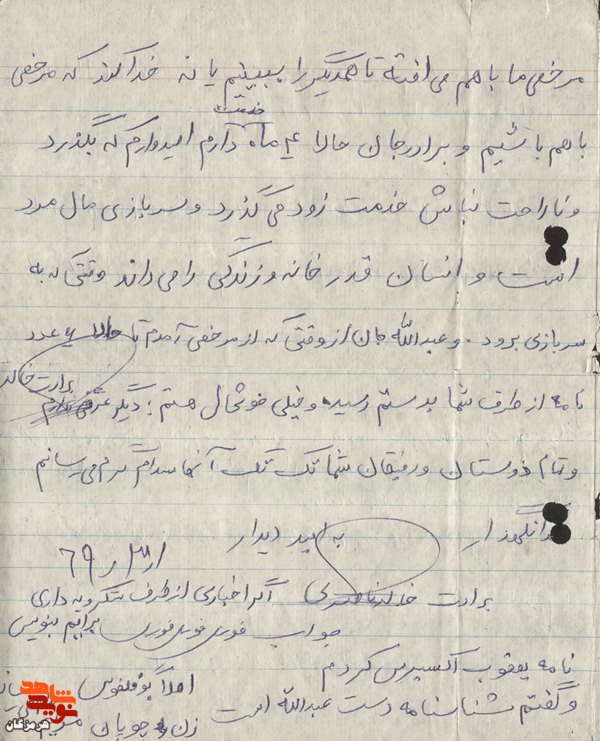 مرخصی ما با هم می افته تا همدیگر را ببینیم یا نه خدا کند که مرخصی
با هم باشیم و برادر جان حالا ۴ ماه خدمت دارم امیدوارم که بگذرد
و ناراحت نباش خدمت زود می گذرد و سربازی مال مرد
است و انسان قدر خانه و زندگی را می داند وقتی که به
سربازی برود. و عبدالله جان از وقتی که از مرخصی آمدم تا حالا عدد
نامه از طرف شما بدستم رسیده و خیلی خوشحال هستم؛ دیگر عرضی ندارم
برادرت خالد
و تمام دوستان و رفیقان شما تک تک آنها سلام گرم می رسانم
به امید دیدار
برادرت
اگر اخباری از طرف داری
جواب فوری فوری فوری برایم بنویس
نامه یعقوب اکسپرس کردم
و گفتم شناسنامه دست عبدالله است
زن چوپان
نوید شاهد
هرمزگان